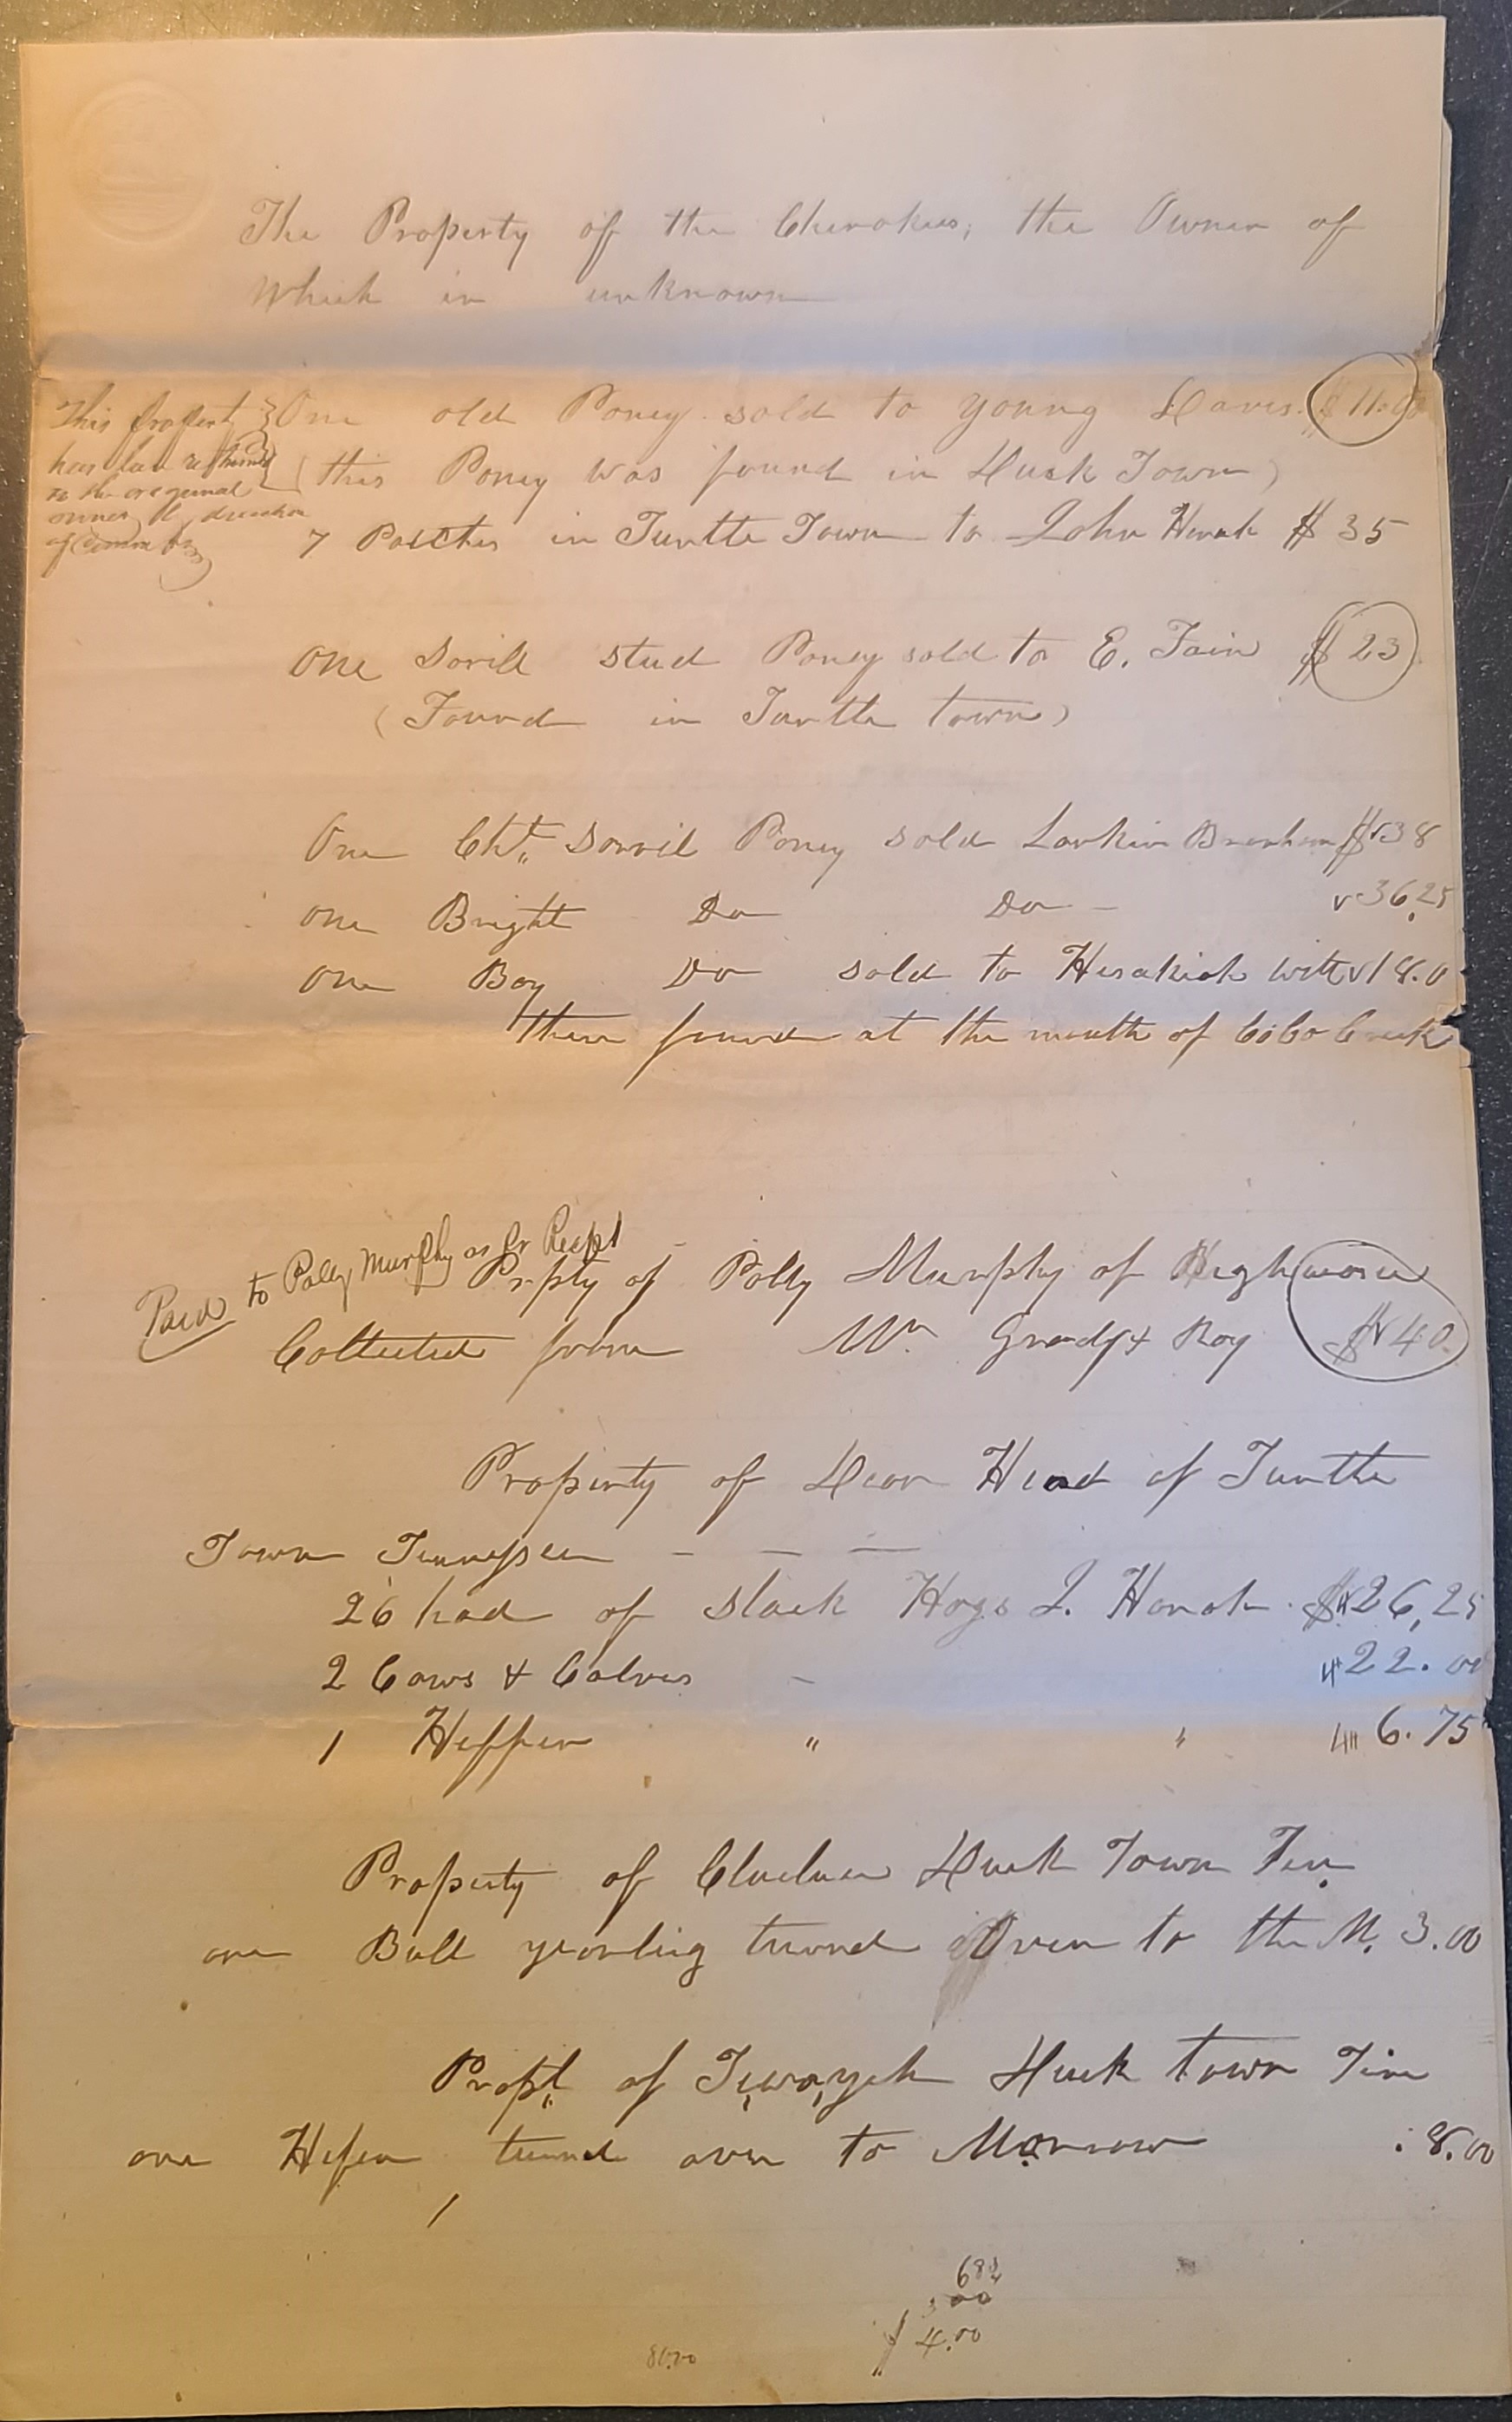 The Property of the Cherokees, the Owner of
Which is unknown
This property
has been returned
to the oregenal
owner by direction
of Comm
One old Poney sold to young Davis. $ 11.00
(this Poney was found in Duck Town)
7 Patches in Turtle Town to John Hawk $ 35
One Sorill stud Poney sold to E. Fain $ 23
(Found in Turtle town)
One Cht. Sorril Poney sold Larkin $ 38
one Bright Do Do - 36,25
one Bay Do sold to Hesakiah Witt 18.0
these found at the mouth of CoCo Creek
Paid to Polly Murphy as pr Recpt
Prpty of Polly Murphy of Highwasee
Collected from Wm Grady & Roy $ 40.
Property of Dear Head of Turtle
Town Tennessee - - -
26 had of Stock Hogs J. Hawk. $ 26,25
2 Cows & Calves - 22.00
1 Heffer " " 6.75
Property of Duck Town Ten
one Bull yearling turned Over to the M. 3.00
Propt. of Duck town Tine
one Hefer turned over to Morrow 8.00
68
00
4.00